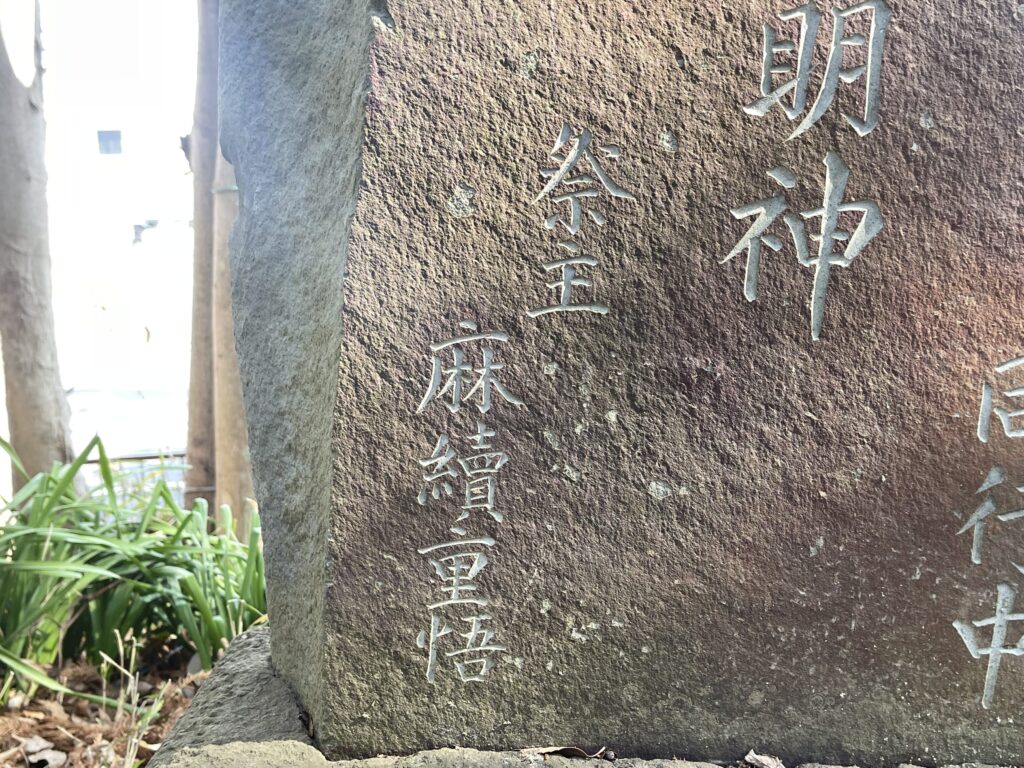 同行中
明神
祭主
麻續重悟